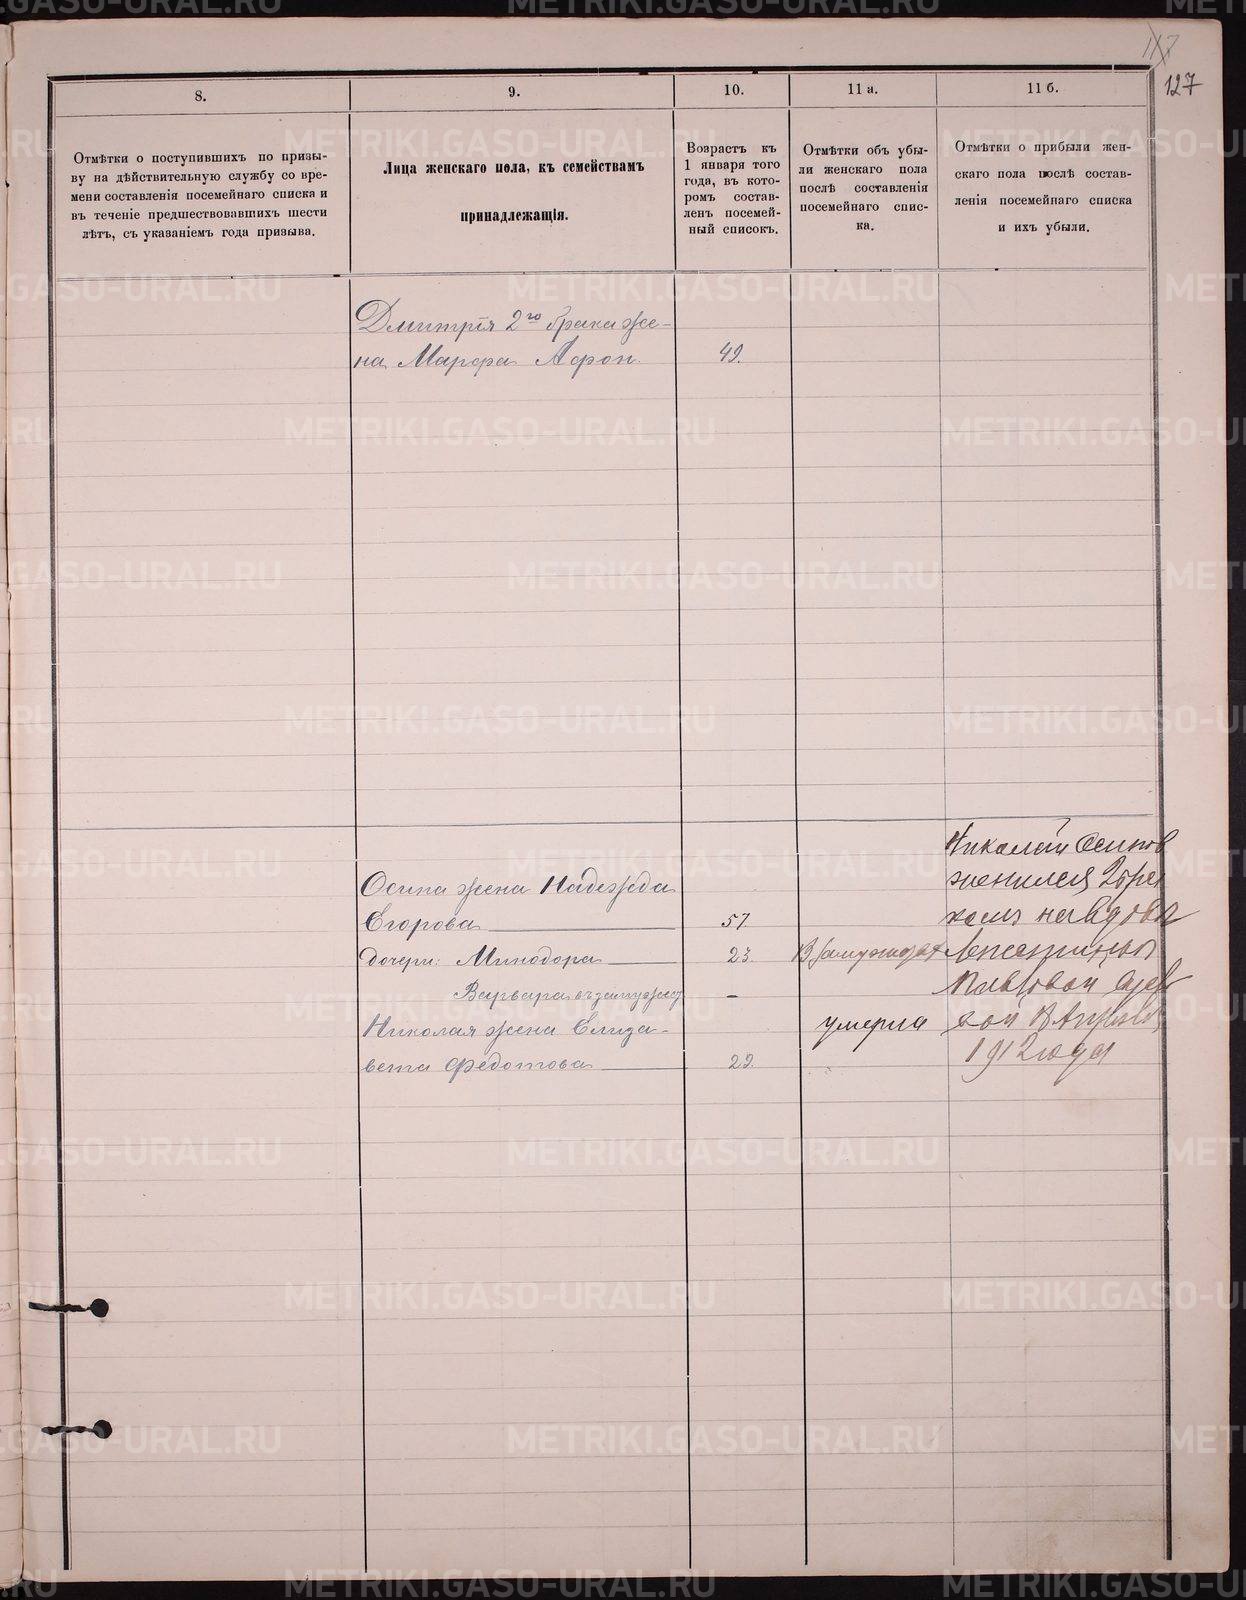 117
127
8.
9.
10.
11 а.
11 б.
Отмѣтки о поступившихъ по призы-
ву на дѣйствительную службу со вре-
мени составленія посемейнаго списка и
въ теченіе предшествовавшихъ шести
лѣтъ, съ указаніемъ года призыва.
Лица женскаго пола, къ семействамъ
принадлежащія.
Возрастъ къ
1 января того
года, въ кото-
ромъ состав-
ленъ посемей-
ный списокъ.
Отмѣтки объ убы-
ли женскаго пола
послѣ составленія
посемейнаго спис-
ка.
Отмѣтки о прибыли жен-
скаго пола послѣ состав-
ленія посемейнаго списка
и ихъ убыли.
Дмитрія 2го брака же-
на Марфа Афон. 49.
Осипа жена Надежда
Егорова 57.
дочери: Минодора 23. В замужест
Варвара въ замужес —
Николая жена Елиза- умерла
вета Федотова 29.
Николай Осипов
женился 2 бра
комъ на вдове
1912 года
METRIKI.GASO-URAL.RU